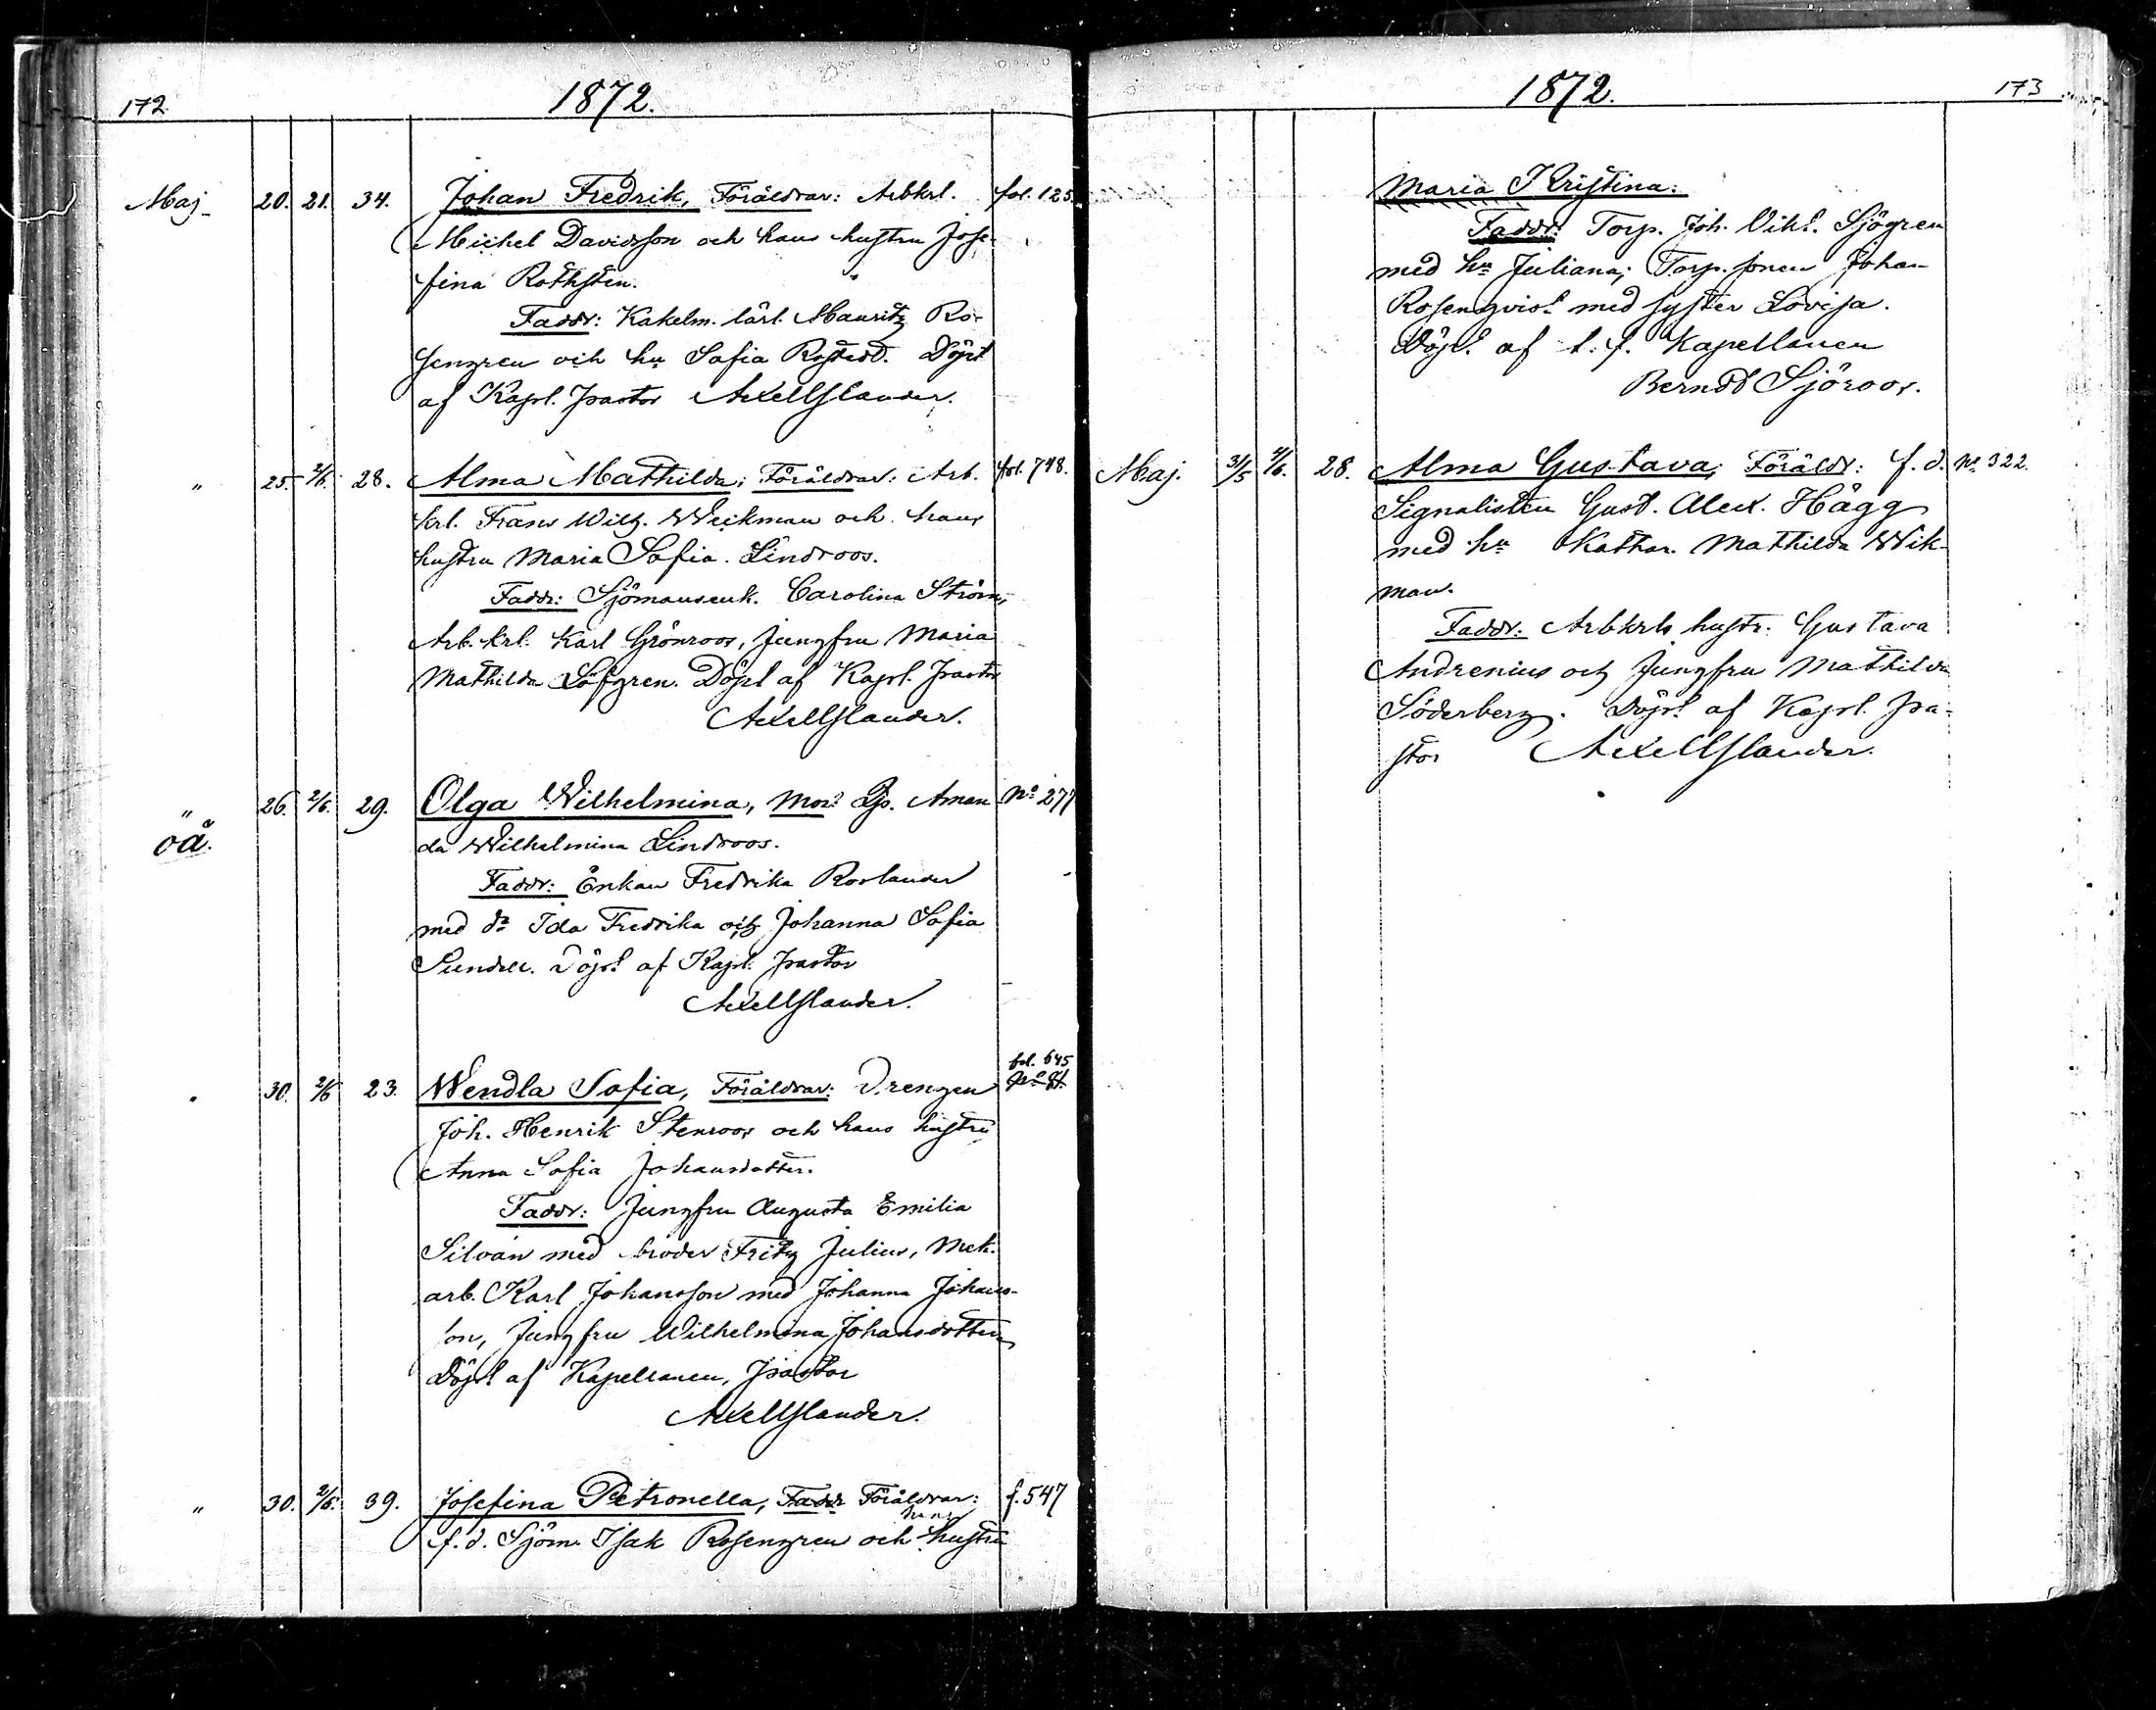 172
1872.
Maj 20. 21. 34. Johan Fredrik, Föräldrar: Arbkrl. fol. 125.
Michel Davidsson och hans hustru Jose-
fina Rothstén.
Faddr: Kakelm. lärl. Mauritz Ro-
sengren och hu Sofia Rostedt. Döpt
af Kapl. pastor Axell Islander.
" 25. 2/6. 28. Alma Mathilda; Föräldrar: Arb. fol. 748.
krl. Frans Wilh. Weikman och hans
hustru Maria Sofia Lindroos.
Faddr: Sjömansenk. Carolina Ström,
Arb. krl. Karl Grönroos, Jungfru Maria
Mathilda Löfgren. Döpt af Kapl. pastor
Axell Islander.
" 26. 2/6. 29. Olga Wilhelmina, Mod. Lp. Aman No 277
öä.
da Wilhelmina Lindroos.
Faddr: Enkan Fredrika Roslander
med dr Ida Fredrika och Johanna Sofia
Sundell. Döpt af Kapl. pastor
Axell Islander.
fol. 645
" 30. 2/6 23. Wendla Sofia, Föräldrar: Drengen
Joh. Henrik Stenroos och hans hustru
Anna Sofia Johansdotter.
Faddr: Jungfru Augusta Emilia
Silván med broder Fritz Julius, Mek.
arb. Karl Johansson med Johanna Johans-
son, Jungfru Wilhelmina Johansdotter
Döpt af Kapellanen, pastor
Axell Islander.
" 30. 2/6. 39. Josefina Petronella, Faddr Föräldrar: f. 547
f. d. Sjöm. Isak Rosengren och hans hustru
1872.
173
Maria Kristina.
Faddr: Torp. Joh. Vikt. Sjögren
med hu Juliana; Torp. sonen Johan
Rosenqvist med syster Lovisa.
Döpt af t. f. Kapellanen
Berndt Sjöroos.
Maj. 31/5 2/6. 28. Alma Gustava; Föräldr: f. d. No 322.
Signalisten Gust. Alex. Hägg
med hu Kathar. Mathilda Wik-
man.
Faddr: Arbkrls hustr. Gustava
Andrenius och Jungfru Mathilda
Söderberg. Döpt af Kapl. pa-
stor Axell Islander.